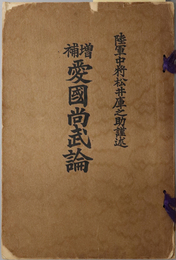 陸軍中將松井庫之助謹述
増補
愛國尚武論